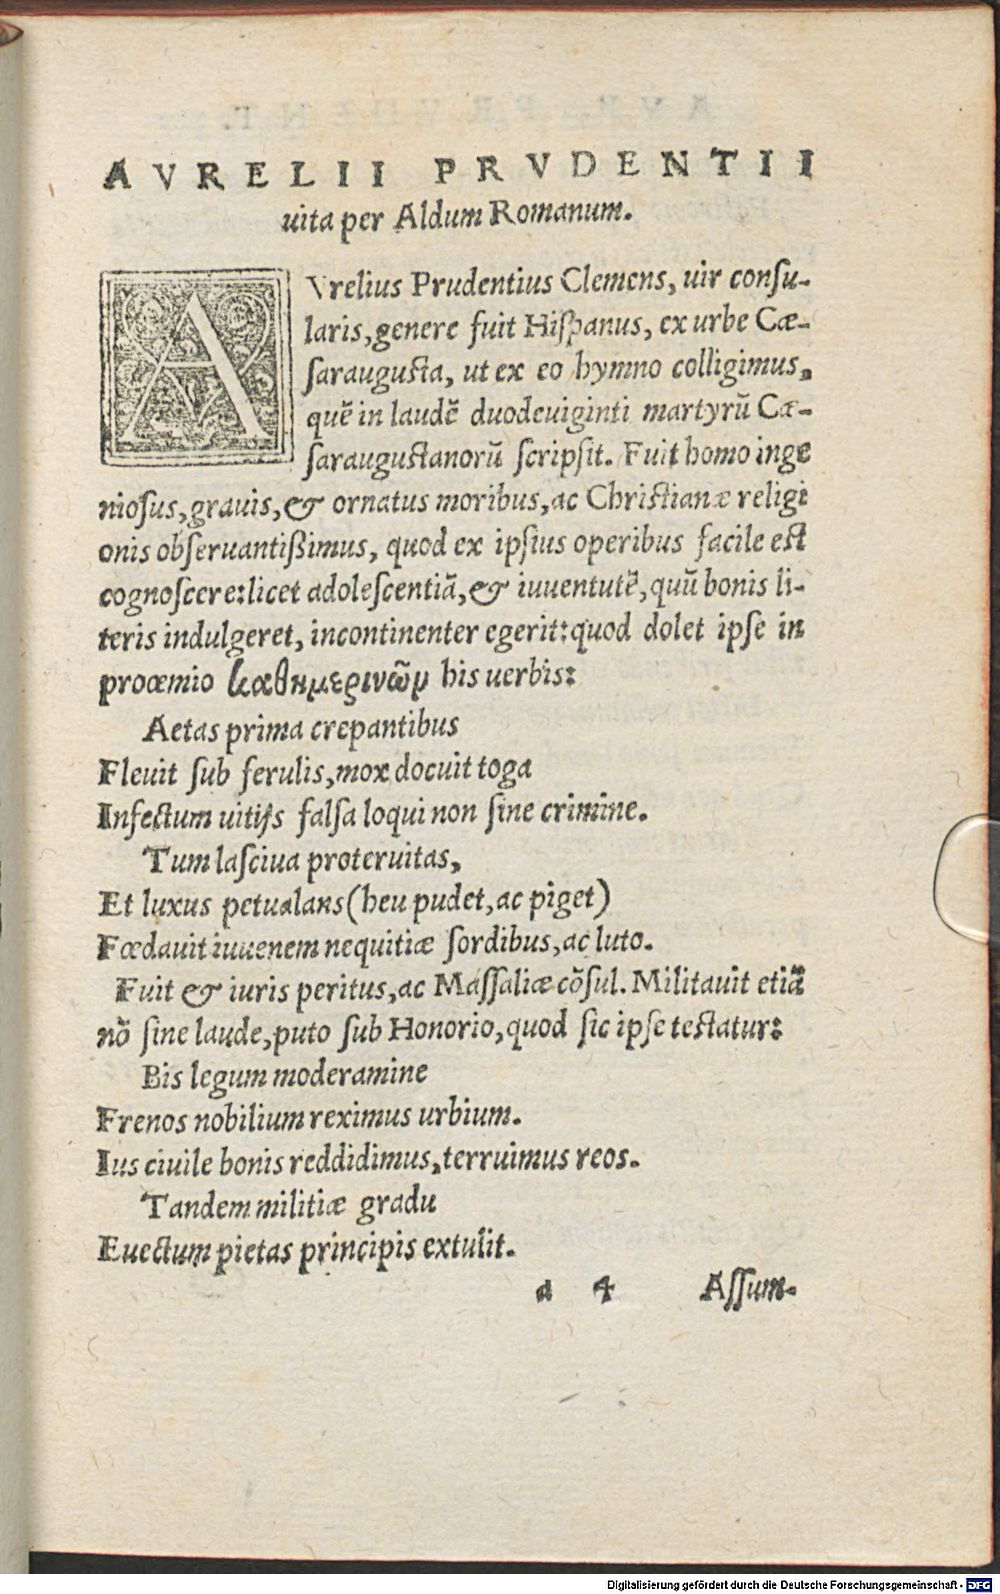 AVRELII PRVDENTII
uita per Aldum Romanum.
AVrelius Prudentius Clemens, uir consu-
laris, genere fuit Hispanus, ex urbe Cæ-
saraugusta, ut ex eo hymno colligimus,
quẽ in laudẽ duodeuiginti martyrũ Cæ-
saraugustanorũ scripsit. Fuit homo inge
niosus, grauis, & ornatus moribus, ac Christianæ religi
onis obseruantißimus, quod ex ipsius operibus facile est
cognoscere: licet adolescentiã, & iuuentutẽ, quũ bonis li-
teris indulgeret, incontinenter egerit: quod dolet ipse in
proœmio καθημερινῶν his uerbis:
Aetas prima crepantibus
Fleuit sub ferulis, mox docuit toga
Infectum uitijs falsa loqui non sine crimine.
Tum lasciua proteruitas,
Et luxus petualans (heu pudet, ac piget)
Fœdauit iuuenem nequitiæ sordibus, ac luto.
Fuit & iuris peritus, ac Massaliæ cõsul. Militauit etiã
nõ sine laude, puto sub Honorio, quod sic ipse testatur:
Bis legum moderamine
Frenos nobilium reximus urbium.
Ius ciuile bonis reddidimus, terruimus reos.
Tandem militiæ gradu
Euectum pietas principis extulit.
a 4 Assum-
Digitalisierung gefördert durch die Deutsche Forschungsgemeinschaft - DFG